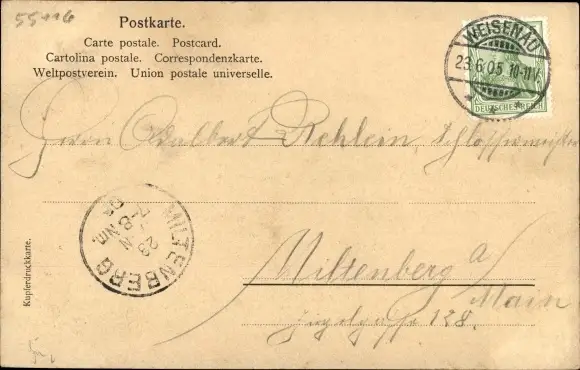 55116
Postkarte.
Carte postale. Postcard.
Cartolina postale. Correspondenzkarte.
Weltpostverein. Union postale universelle.
WEISENAU
23.6.05 10-11V.
DEUTSCHES REICH
Herrn Adalbert Rehlein, Schlossermeister
MILTENBERG
23
7-8 Nm.
05
Miltenberg a/
Main
128.
Kupferdruckkarte.